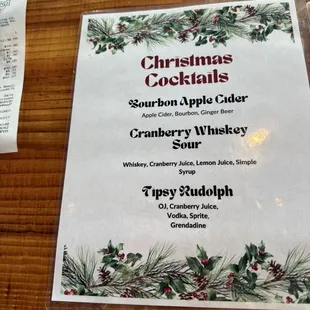 Christmas
Cocktails
Bourbon Apple Cider
Apple Cider, Bourbon, Ginger Beer
Cranberry Whiskey
Sour
Whiskey, Cranberry Juice, Lemon Juice, Simple
Syrup
Tipsy Rudolph
OJ, Cranberry Juice,
Vodka, Sprite,
Grendadine